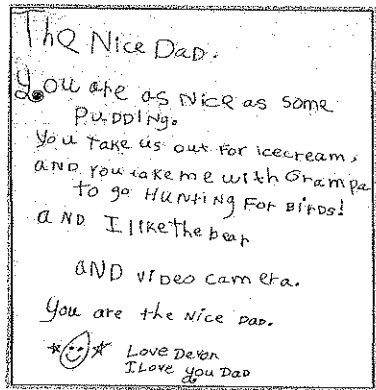 The Nice Dad.
You are as Nice as some
PuDDiNg.
You Take us out For icecream,
AND You take me with Grampa
to go HUNtiNg For BirDs!
AND I like the bear
AND viDeo camera.
You are the Nice DaD.
Love Devon
I Love you DaD